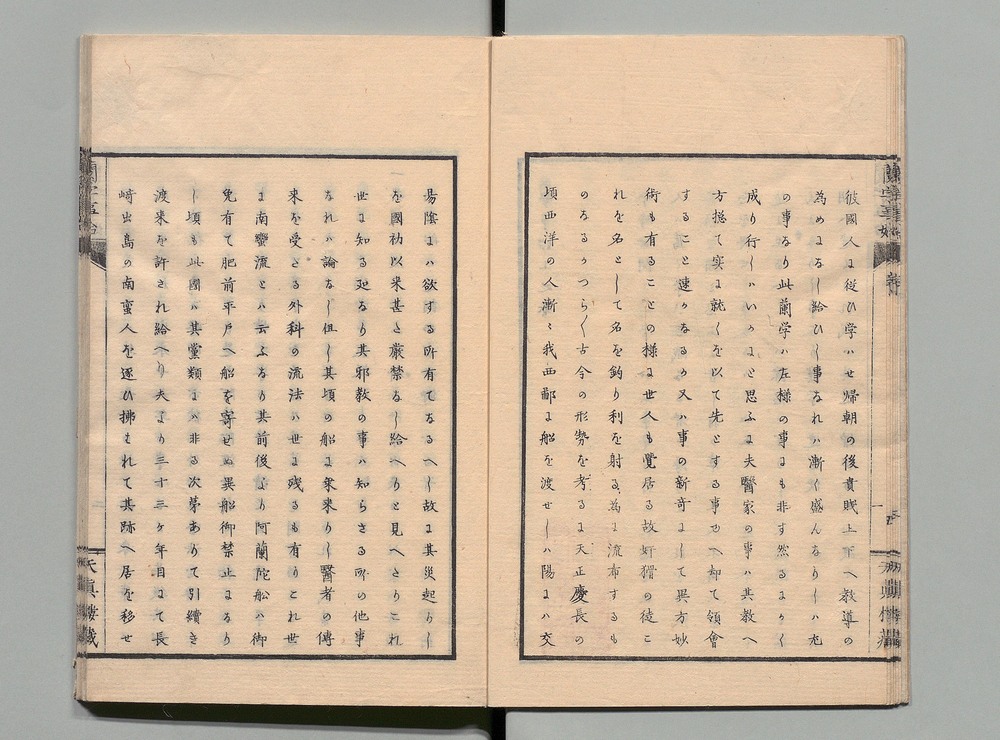 彼國人に従ひ学ハせ帰朝の後貴賤上下へ教導の
為めになし給ひし事なれハ漸く盛んなりしハ尤
の事なり此蘭学ハ左様の事にも非す然るにかく
成り行しハいかにと思ふに夫醫家の事ハ其教へ
方捴て実に就くを以て先とする事ゆへ却て領會
すること速かなるか又ハ事の新奇にして異方妙
術も有ることの様に世人も覺居る故奸猾の徒こ
れを名として名を釣り利を射る為に流布するも
のなるかつら〱古今の形勢を考るに天正慶長の
頃西洋の人漸〻我西鄙に船を渡せしハ陽にハ交
易陰にハ欲する所有てなるへし故に其災起りし
を國初以来甚た厳禁なし給へりと見へたりこれ
世に知る処なり其邪教の事ハ知らさる所の他事
なれハ論なし但し其頃の船に乗来りし醫者の傳
来を受たる外科の流法ハ世に残るも有りこれ世
に南蠻流とハ云ふなり其前後より阿蘭陀船ハ御
免有て肥前平戸へ船を寄せぬ異船御禁止になり
し頃も此國ハ其黨類にハ非る次第ありて引續き
渡来を許され給へり夫より三十三ヶ年目にて長
﨑出島の南蛮人を逐ひ拂はれて其跡へ居を移せ
蘭学事始
天真楼蔵